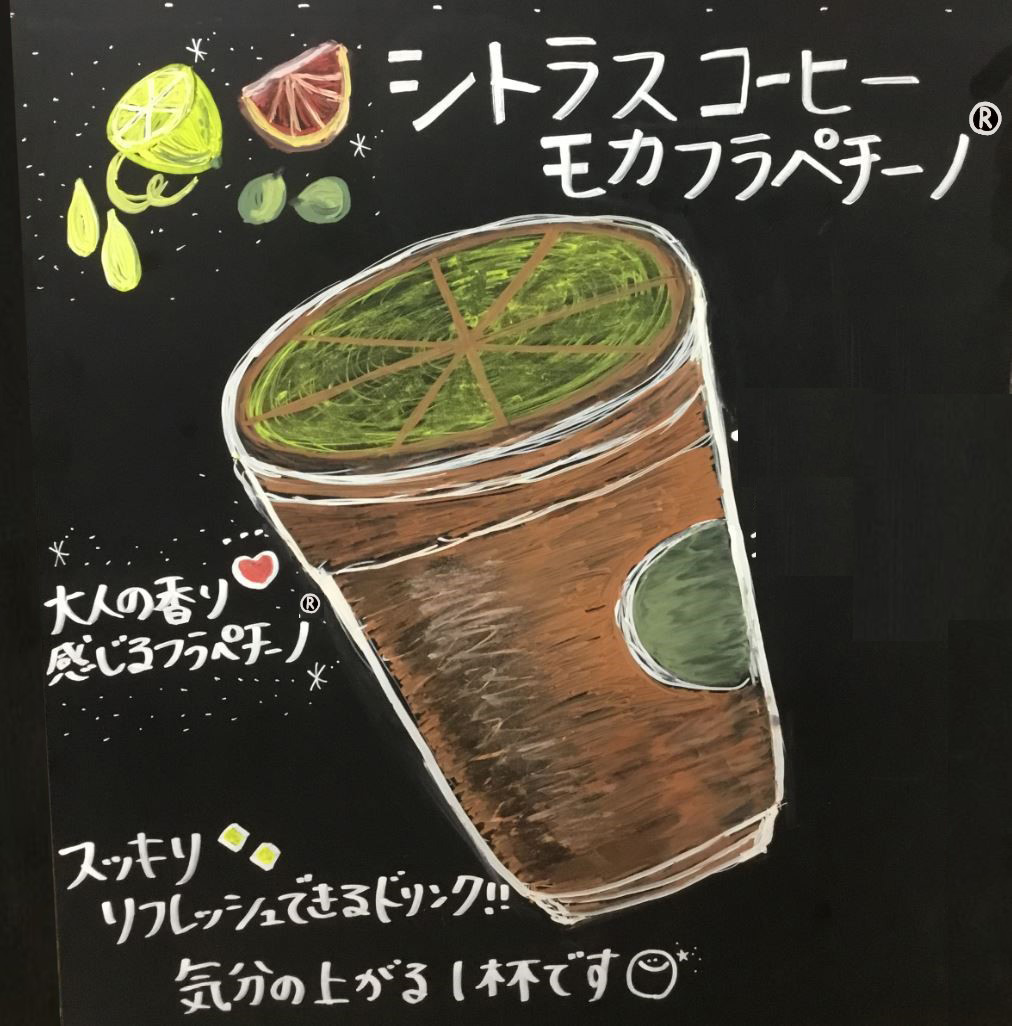 シトラス コーヒー
モカフラペチーノ®
大人の香り
感じるフラペチーノ®
スッキリ
リフレッシュできるドリンク!!
気分の上がる1杯です